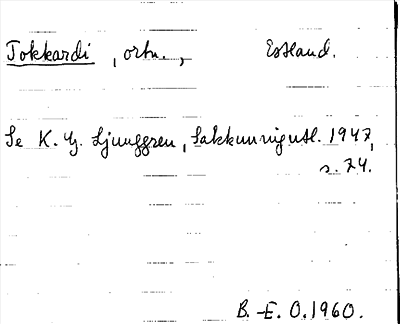 Tokkardi, ortn., Estland.
Se K. G. Ljunggren, Sakkunnigutl. 1947,
s. 74.
B.-E. O. 1960.